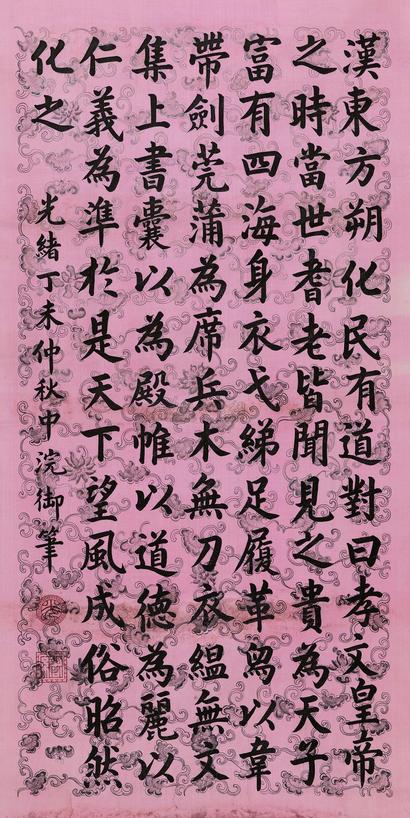 漢東方朔化民有道對曰孝文皇帝
之時當世耆老皆聞見之貴為天子
富有四海身衣弋綈足履革舄以韋
帶劍莞蒲為席兵木無刀衣縕無文
集上書囊以為殿帷以道德為麗以
仁義為準於是天下望風成俗昭然
化之
光緒丁未仲秋中浣御筆